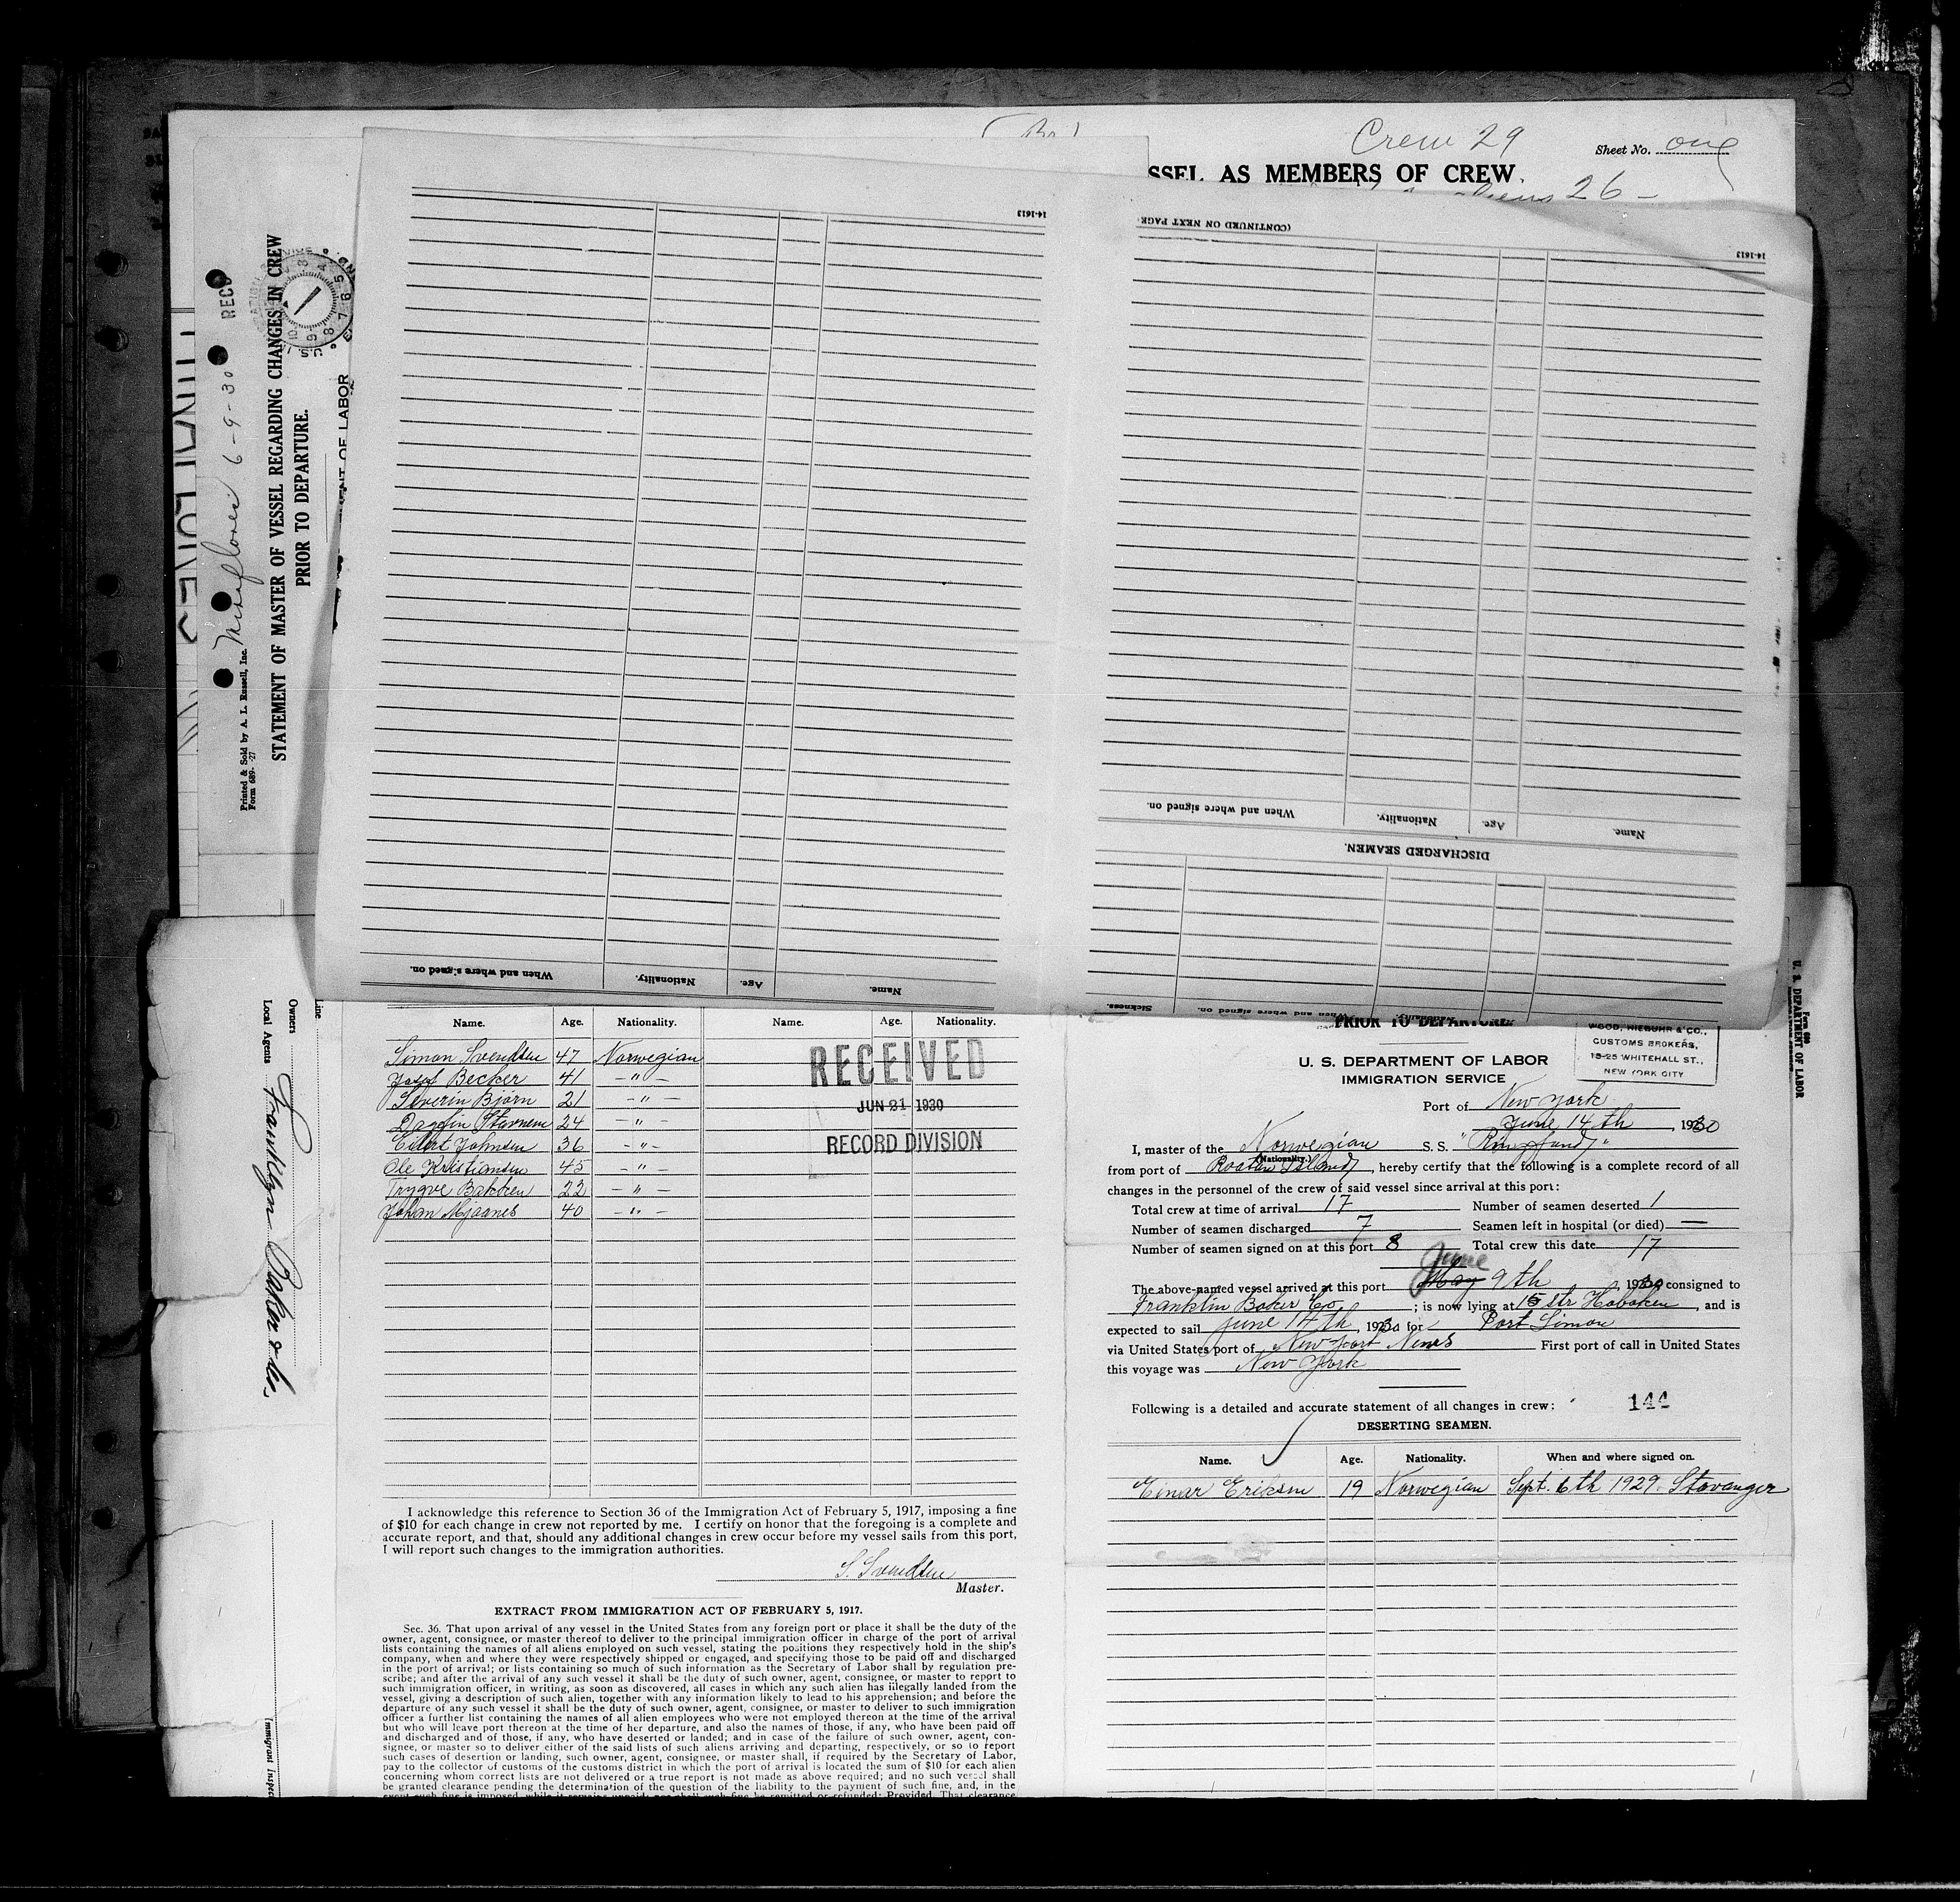 Crew 29
Sheet No. one
SSEL AS MEMBERS OF CREW.
26 -
RECD
Miraflores 6-9-30
Printed & Sold by A. L. Russell, Inc.
Form 689- -27
STATEMENT OF MASTER OF VESSEL REGARDING CHANGES IN CREW
PRIOR TO DEPARTURE.
ENT OF LABOR
14-1613
When and where signed on.
Nationality.
Age.
Name.
(CONTINUED ON NEXT PAGE
14-1613
When and where signed on.
Nationality.
Age.
Name.
DISCHARGED SEAMEN.
Sickness.
When and where signed on.
Nationality.
Line
Owners
Local Agents Franklyn Baker & Co.
Immigrant Inspec
Name. Age. Nationality. Name. Age. Nationality.
Simon Svendsen 47 Norwegian
Josef Becker 41 - " -
Severin Bjørn 21 - " -
Dagfin Stavnem 24 - " -
Eilert Johnsen 36 - " -
Ole Kristiansen 45 - " -
Trygve Bakken 23 - " -
Johan Mjaanes 40 - " -
RECEIVED
JUN 21 1930
RECORD DIVISION
I acknowledge this reference to Section 36 of the Immigration Act of February 5, 1917, imposing a fine
of $10 for each change in crew not reported by me. I certify on honor that the foregoing is a complete and
accurate report, and that, should any additional changes in crew occur before my vessel sails from this port,
I will report such changes to the immigration authorities.
S. Svendsen
Master.
EXTRACT FROM IMMIGRATION ACT OF FEBRUARY 5, 1917.
Sec. 36. That upon arrival of any vessel in the United States from any foreign port or place it shall be the duty of the
owner, agent, consignee, or master thereof to deliver to the principal immigration officer in charge of the port of arrival
lists containing the names of all aliens employed on such vessel, stating the positions they respectively hold in the ship's
company, when and where they were respectively shipped or engaged, and specifying those to be paid off and discharged
in the port of arrival; or lists containing so much of such information as the Secretary of Labor shall by regulation pre-
scribe; and after the arrival of any such vessel it shall be the duty of such owner, agent, consignee, or master to report to
such immigration officer, in writing, as soon as discovered, all cases in which any such alien has illegally landed from the
vessel, giving a description of such alien, together with any information likely to lead to his apprehension; and before the
departure of any such vessel it shall be the duty of such owner, agent, consignee, or master to deliver to such immigration
officer a further list containing the names of all alien employees who were not employed thereon at the time of the arrival
but who will leave port thereon at the time of her departure, and also the names of those, if any, who have been paid off
and discharged and of those, if any, who have deserted or landed; and in case of the failure of such owner, agent, con-
signee, or master so to deliver either of the said lists of such aliens arriving and departing, respectively, or so to report
such cases of desertion or landing, such owner, agent, consignee, or master shall, if required by the Secretary of Labor,
pay to the collector of customs of the customs district in which the port of arrival is located the sum of $10 for each alien
concerning whom correct lists are not delivered or a true report is not made as above required; and no such vessel shall
be granted clearance pending the determination of the question of the liability to the payment of such fine, and, in the
event such fine is imposed, while it remains unpaid; nor shall such fine be remitted or refunded: Provided, That clearance
PRIOR TO DEPARTURE
WOOD, NIEBUHR & CO.,
CUSTOMS BROKERS,
18-25 WHITEHALL ST.,
NEW YORK CITY
U. S. DEPARTMENT OF LABOR
IMMIGRATION SERVICE
Port of New York
June 14th, 1930
I, master of the Norwegian S. S. "Ringfond"
(Nationality.)
from port of Roatan Island, hereby certify that the following is a complete record of all
changes in the personnel of the crew of said vessel since arrival at this port:
Total crew at time of arrival 17 Number of seamen deserted 1
Number of seamen discharged 7 Seamen left in hospital (or died) —
Number of seamen signed on at this port 8 Total crew this date 17
June
The above-named vessel arrived at this port May 9th 1930 consigned to
Franklin Baker Co; is now lying at 15 str Hoboken, and is
expected to sail June 14th, 1930 for Port Limon
via United States port of Newport News First port of call in United States
this voyage was New York
Following is a detailed and accurate statement of all changes in crew:
144
DESERTING SEAMEN.
Name. Age. Nationality. When and where signed on.
Einar Eriksen 19 Norwegian Sept. 6th 1929. Stavanger
Form 689
U. S. DEPARTMENT OF LABOR